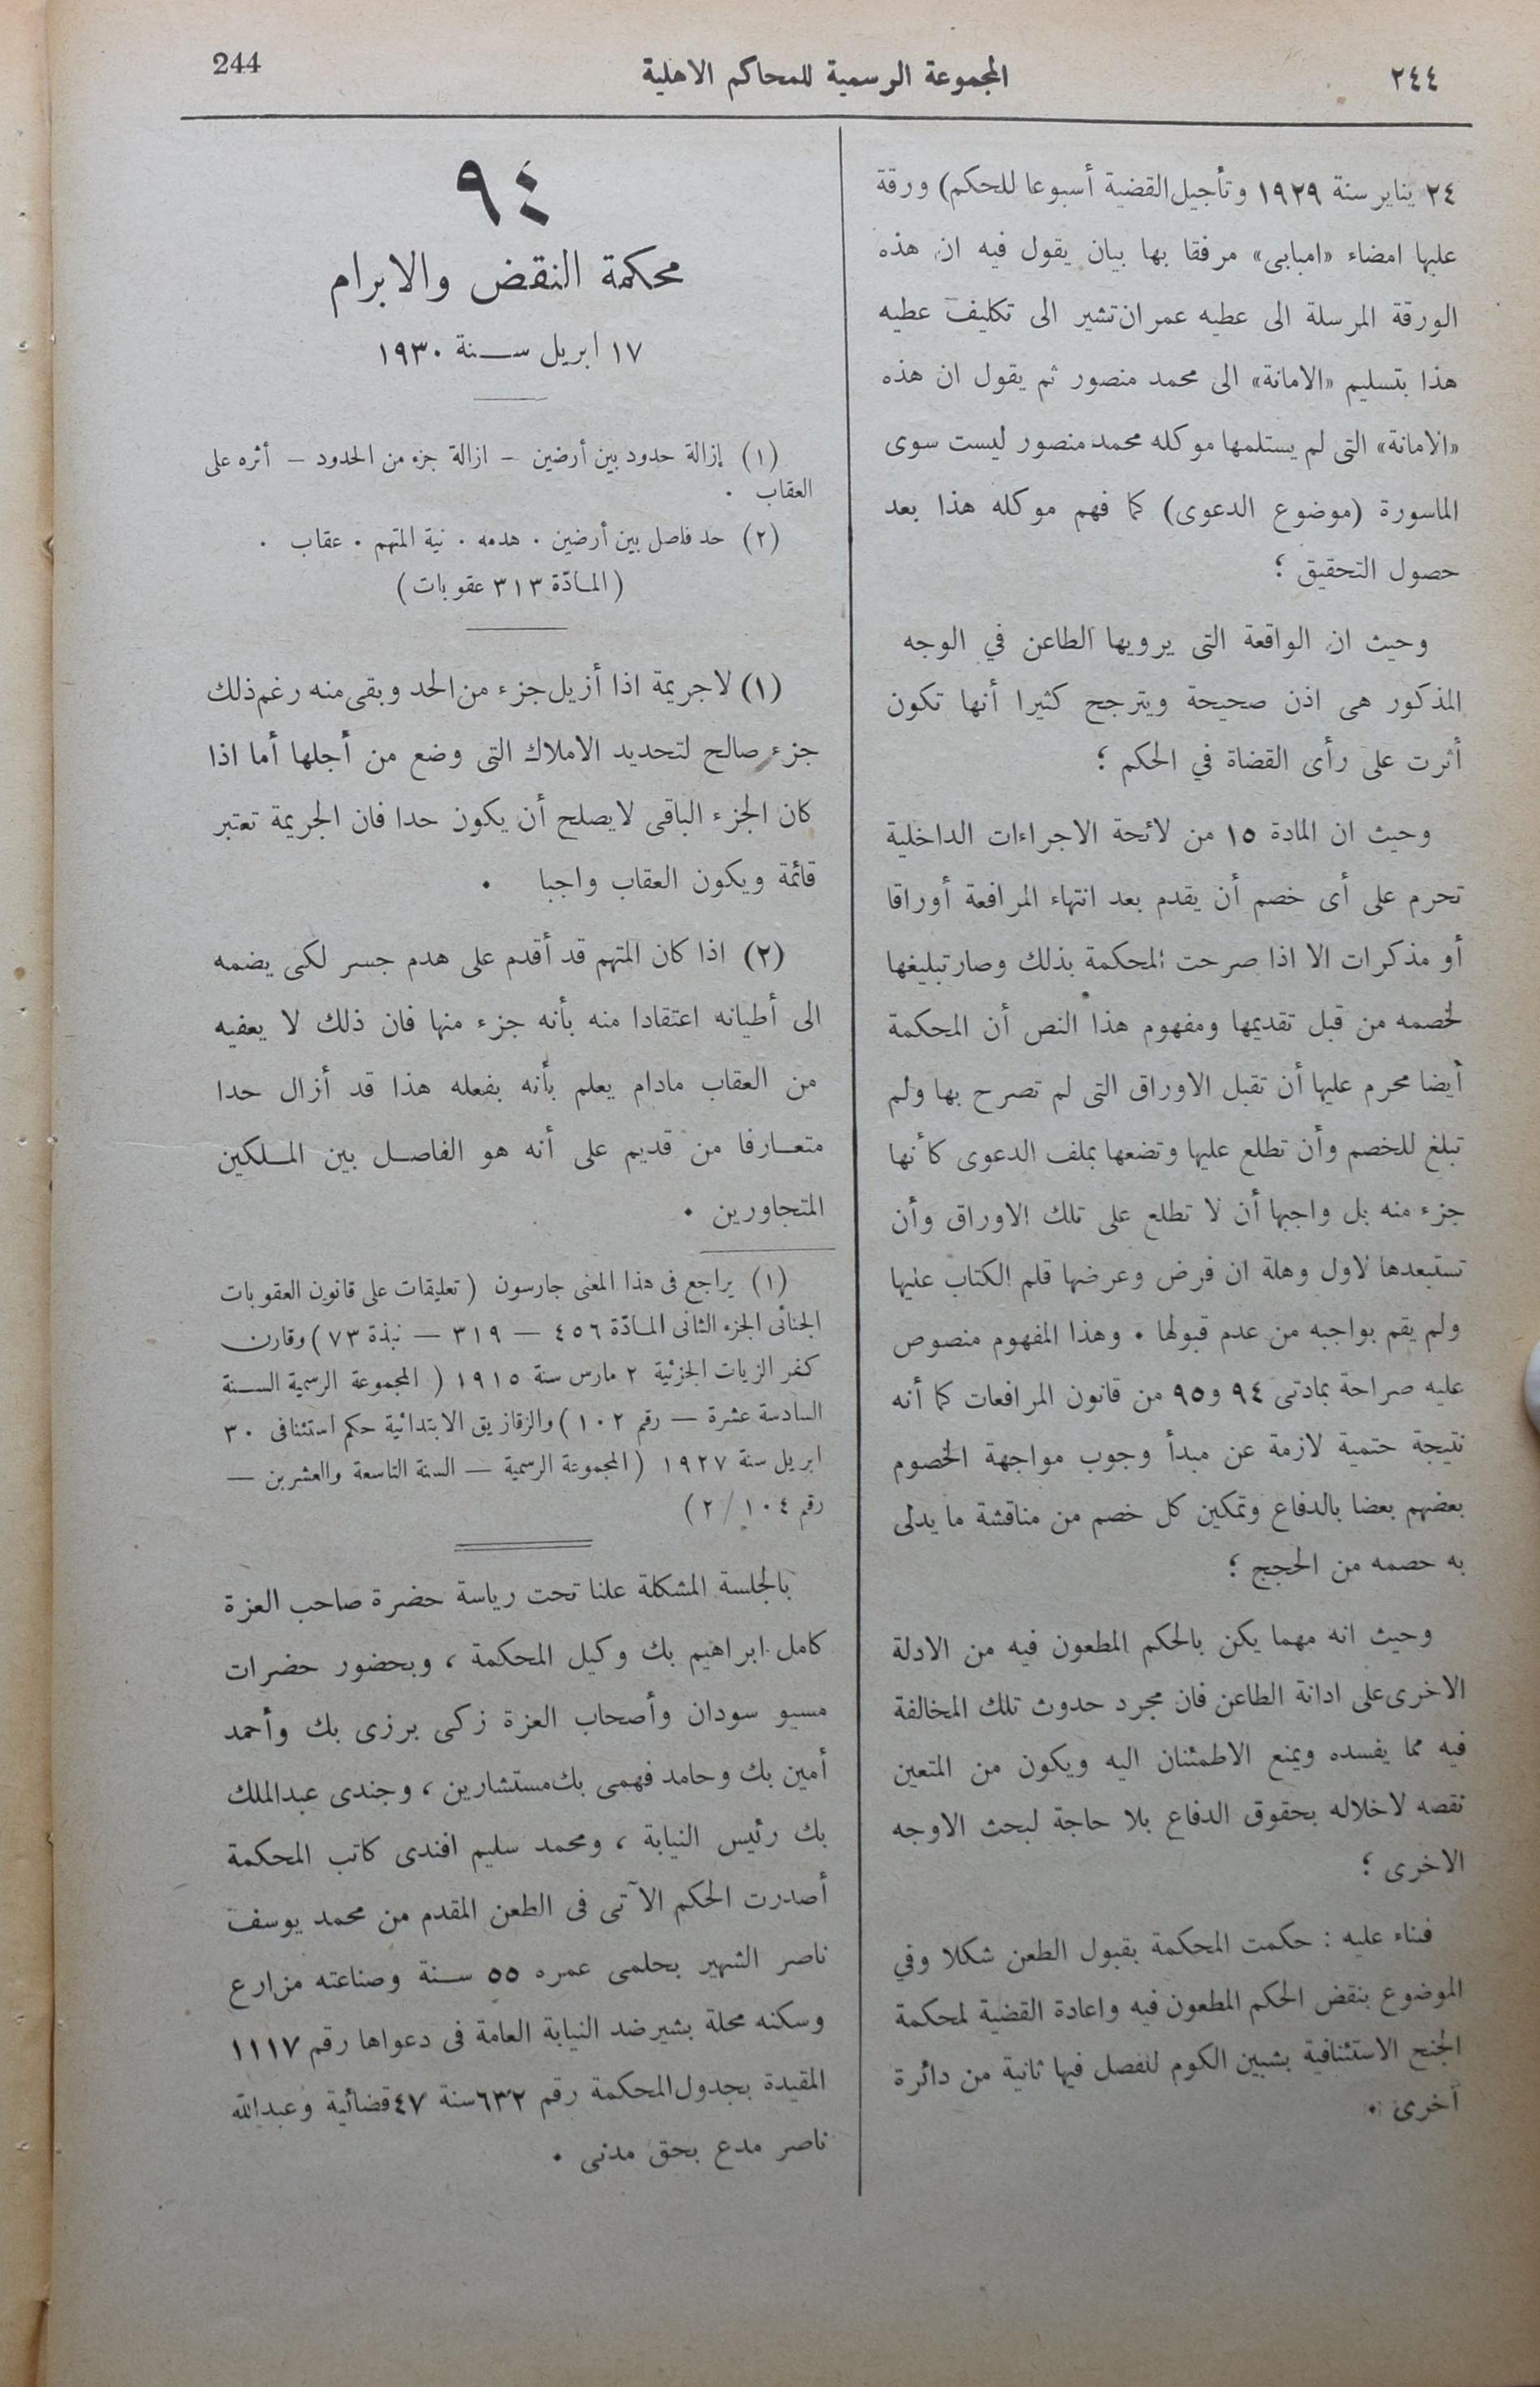 ٢٤٤
المجموعة الرسمية للمحاكم الاهلية
244
٢٤ يناير سنة ١٩٢٩ وتأجيل القضية أسبوعا للحكم) ورقة
عليها امضاء «امبابى» مرفقا بها بيان يقول فيه ان هذه
الورقة المرسلة الى عطيه عمران تشير الى تكليف عطيه
هذا بتسليم «الامانة» الى محمد منصور ثم يقول ان هذه
«الامانة» التى لم يستلمها موكله محمد منصور ليست سوى
الماسورة (موضوع الدعوى) كما فهم موكله هذا بعد
حصول التحقيق ؛
وحيث ان الواقعة التى يرويها الطاعن في الوجه
المذكور هى اذن صحيحة ويترجح كثيرا أنها تكون
أثرت على رأى القضاة في الحكم ؛
وحيث ان المادة ١٥ من لائحة الاجراءات الداخلية
تحرم على أى خصم أن يقدم بعد انتهاء المرافعة أوراقا
أو مذكرات الا اذا صرحت المحكمة بذلك وصار تبليغها
لخصمه من قبل تقديمها ومفهوم هذا النص أن المحكمة
أيضا محرم عليها أن تقبل الاوراق التى لم تصرح بها ولم
تبلغ للخصم وأن تطلع عليها وتضعها بملف الدعوى كأنها
جزء منه بل واجبها أن لا تطلع على تلك الاوراق وأن
تستبعدها لاول وهلة ان فرض وعرضها قلم الكتاب عليها
ولم يقم بواجبه من عدم قبولها . وهذا المفهوم منصوص
عليه صراحة بمادتى ٩٤ و٩٥ من قانون المرافعات كما أنه
نتيجة حتمية لازمة عن مبدأ وجوب مواجهة الخصوم
بعضهم بعضا بالدفاع وتمكين كل خصم من مناقشة ما يدلى
به خصمه من الحجج ؛
وحيث انه مهما يكن بالحكم المطعون فيه من الادلة
الاخرى على ادانة الطاعن فان مجرد حدوث تلك المخالفة
فيه مما يفسده ويمنع الاطمئنان اليه ويكون من المتعين
نقضه لاخلاله بحقوق الدفاع بلا حاجة لبحث الاوجه
الاخرى ؛
فبناء عليه : حكمت المحكمة بقبول الطعن شكلا وفي
الموضوع بنقض الحكم المطعون فيه واعادة القضية لمحكمة
الجنح الاستئنافية بشبين الكوم لتفصل فيها ثانية من دائرة
أخرى .
٩٤
محكمة النقض والابرام
١٧ ابريل سنة ١٩٣٠
(١) إزالة حدود بين أرضين – ازالة جزء من الحدود – أثره على
العقاب .
(٢) حد فاصل بين أرضين . هدمه . نية المتهم . عقاب .
(المادّة ٣١٣ عقوبات)
(١) لا جريمة اذا أزيل جزء من الحد وبقى منه رغم ذلك
جزء صالح لتحديد الاملاك التى وضع من أجلها أما اذا
كان الجزء الباقى لا يصلح أن يكون حدا فان الجريمة تعتبر
قائمة ويكون العقاب واجبا .
(٢) اذا كان المتهم قد أقدم على هدم جسر لكى يضمه
الى أطيانه اعتقادا منه بأنه جزء منها فان ذلك لا يعفيه
من العقاب مادام يعلم بأنه بفعله هذا قد أزال حدا
متعارفا من قديم على أنه هو الفاصل بين الملكين
المتجاورين .
(١) يراجع فى هذا المعنى جارسون (تعليقات على قانون العقوبات
الجنائى الجزء الثانى المادّة ٤٥٦ – ٣١٩ – نبذة ٧٣) وقارن
كفر الزيات الجزئية ٢ مارس سنة ١٩١٥ (المجموعة الرسمية السنة
السادسة عشرة – رقم ١٠٢) والزقازيق الابتدائية حكم استئنافى ٣٠
ابريل سنة ١٩٢٧ (المجموعة الرسمية – السنة التاسعة والعشرين –
رقم ١٠٤ / ٢)
بالجلسة المشكلة علنا تحت رياسة حضرة صاحب العزة
كامل ابراهيم بك وكيل المحكمة ، وبحضور حضرات
مسيو سودان وأصحاب العزة زكى برزى بك وأحمد
أمين بك وحامد فهمى بك مستشارين ، وجندى عبدالملك
بك رئيس النيابة ، ومحمد سليم افندى كاتب المحكمة
أصدرت الحكم الآتى فى الطعن المقدم من محمد يوسف
ناصر الشهير بحلمى عمره ٥٥ سنة وصناعته مزارع
وسكنه محلة بشير ضد النيابة العامة فى دعواها رقم ١١١٧
المقيدة بجدول المحكمة رقم ٦٣٢ سنة ٤٧ قضائية وعبدالله
ناصر مدع بحق مدنى .